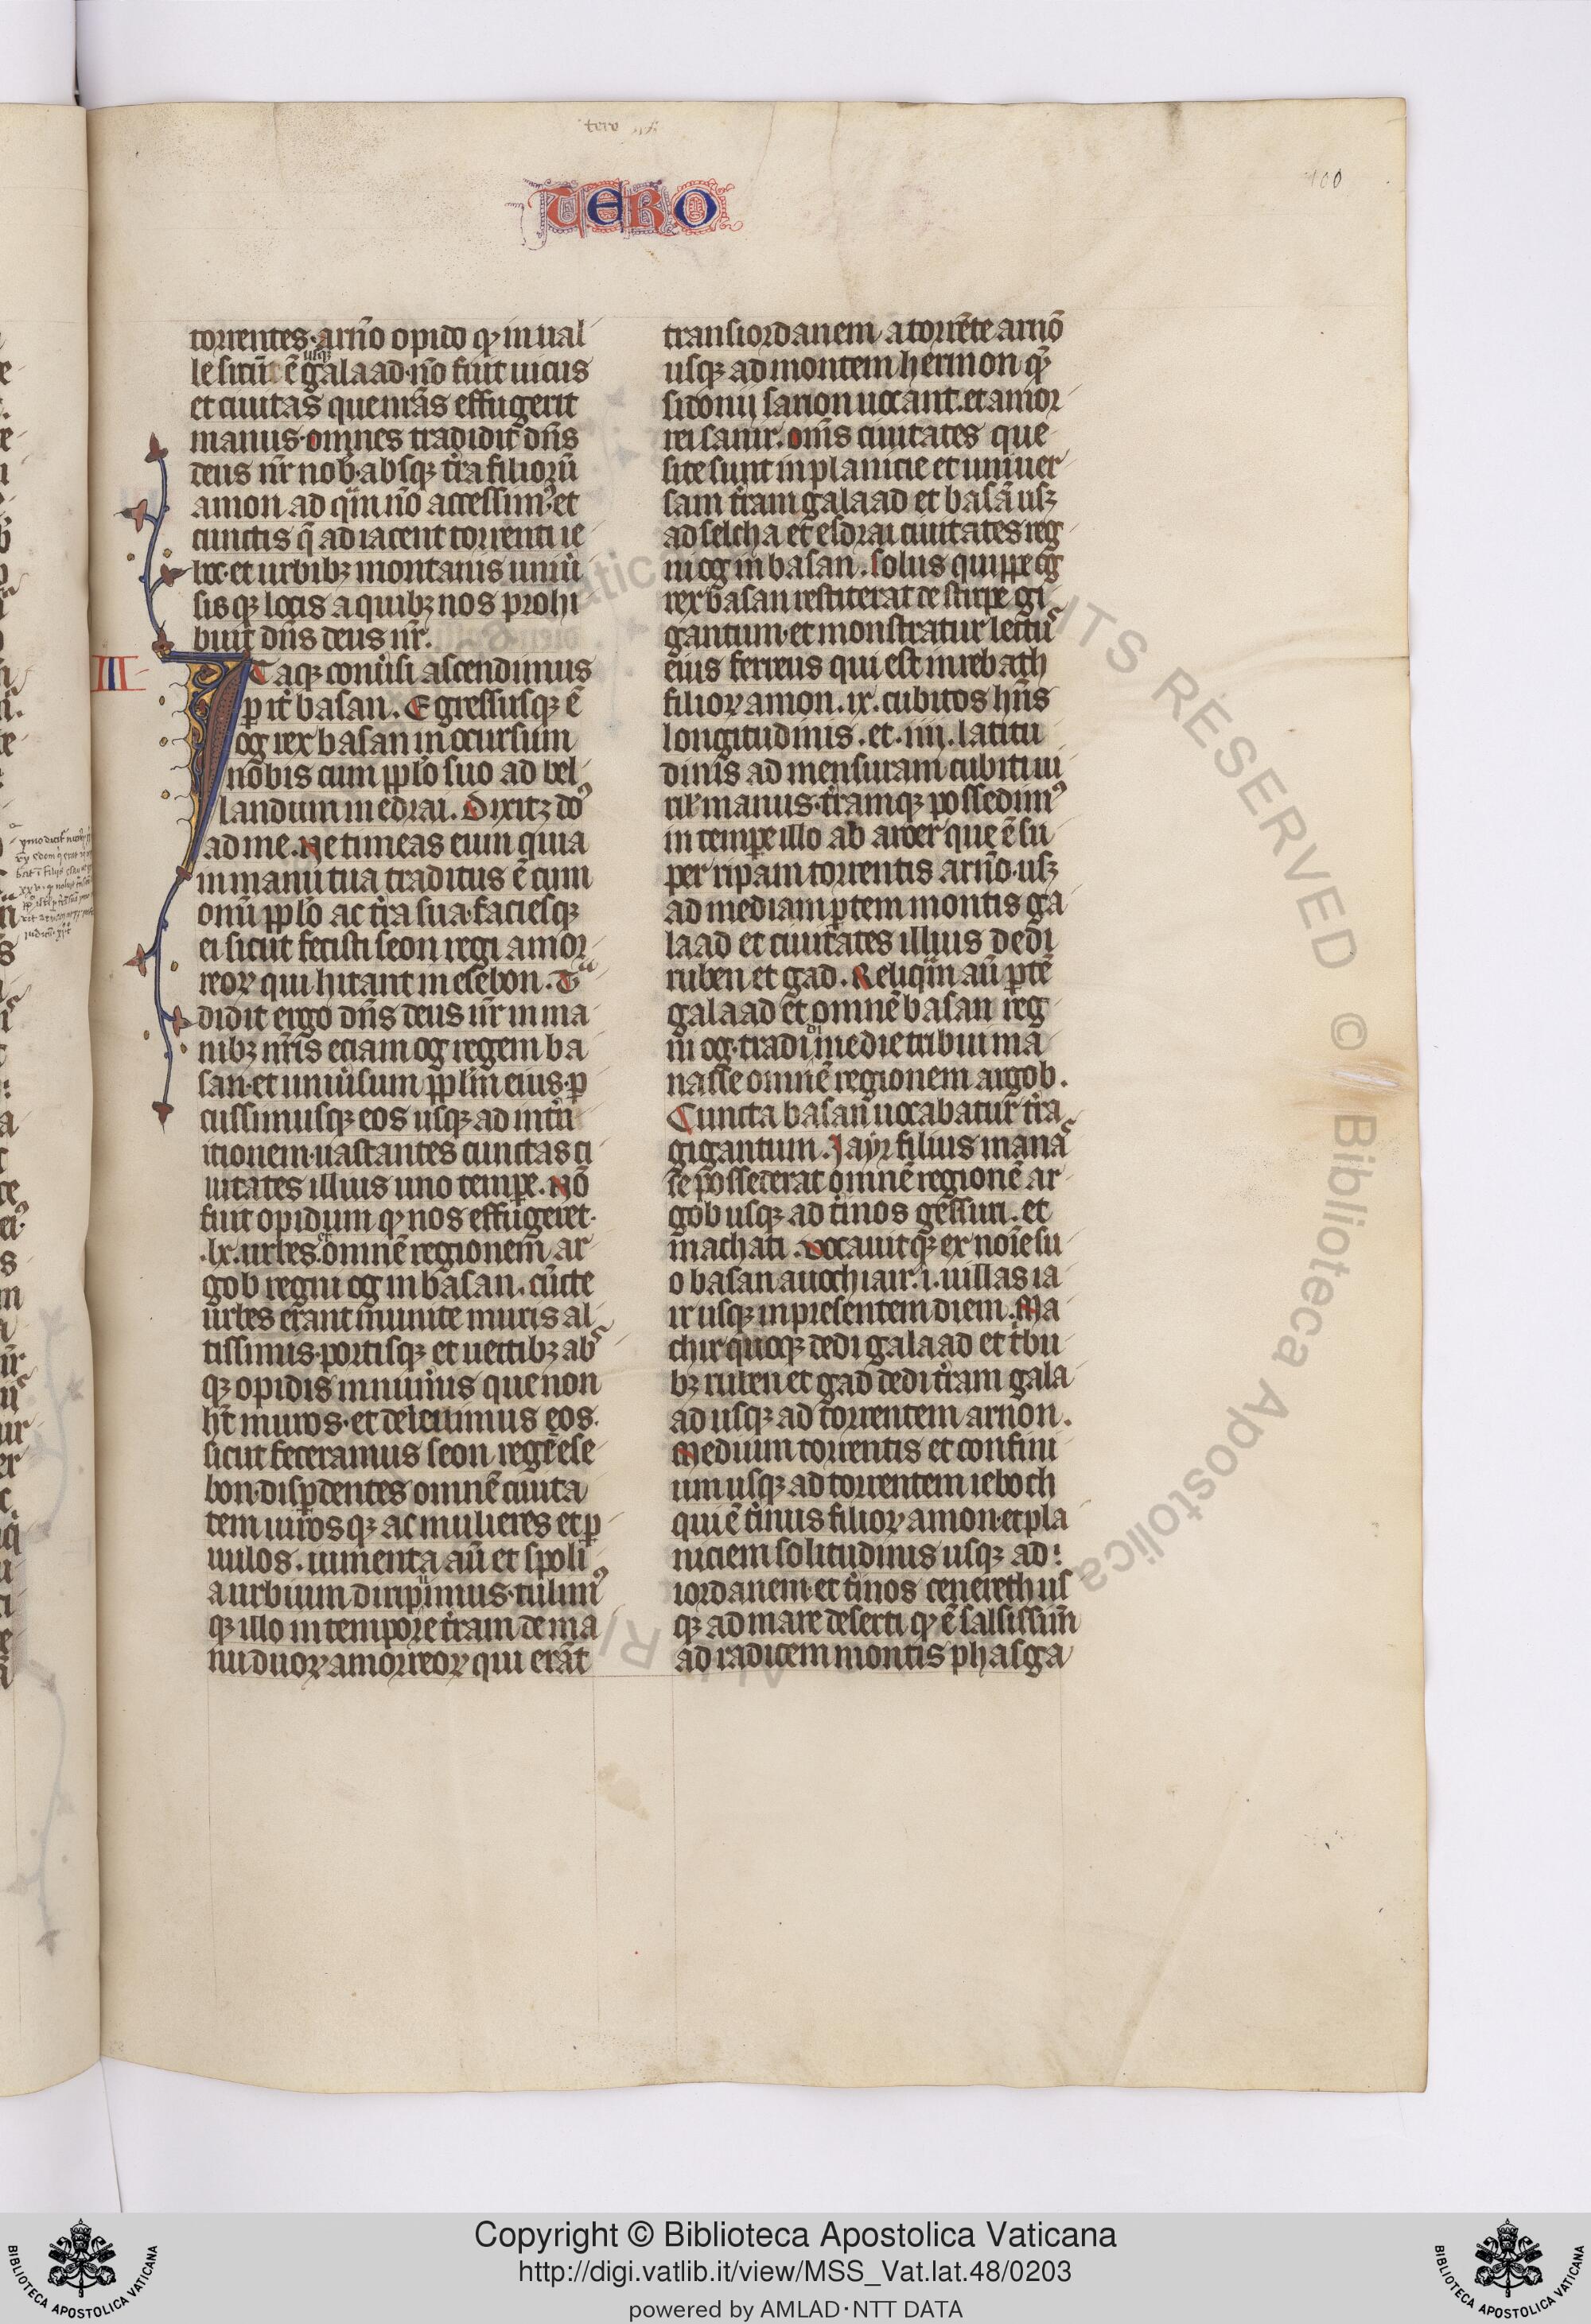 tero
100
TERO
torrentes·arño opido qͥ in ual
le sitū ē usqꝫ galaad·nō fuit uicus
et ciuitas que nr̄as effugerit
manus·omnes tradidit dn̄s
deus nr̄ nob̄·absqꝫ tr̄a filiorū
amon ad qͣm nō accessim9·et
cunctis q̄ adiacent torrenti ie
boc·et urbibꝫ montanis uniu̓
sisqꝫ locis a quibꝫ nos prohi
buit dn̄s deus nr̄.
III
ITaqꝫ conu̓si ascendimus
ꝑ it̓ basan. Egressusqꝫ ē
og rex basan in occursum
nobis cum pplo̓ suo ad bel
landum in edrai. Dixitqꝫ do9
ad me. Ne timeas eum quia
in manu tua traditus ē cum
om̄i pplo̓ ac tr̓a sua·faciesqꝫ
ei sicut fecisti seon regi amor
reoꝝ qui hītant in esebon. Tͣ
didit ergo dn̄s deus nr̄ in ma
nibꝫ nr̄is eciam og regem ba
san·et uniu̓sum ppl̓m eius·ꝑ
cussimusqꝫ eos usqꝫ ad int̓n
itionem·uastantes cunctas ci
uitates illius uno tempe̓. Nō
fuit opidum qͥ nos effugeret·
.lx. urbes. et omnē regionem ar
gob regni og in basan. cūcte
urbes erant munite muris al
tissimis·portisqꝫ et uectibꝫ abs
qꝫ opidis innum̓is que non
hn̄t muros·et deleuimus eos·
sicut feceramus seon regē ese
bon·disꝑdentes omnē ciuita
tem uirosqꝫ ac mulieres et ꝑ
uulos. iumenta au̓ et spoli
a urbium diripuimus·tulim9
qꝫ illo in tempore tr̓am de ma
nu duoꝝ amorreoꝝ qui erāt
trans iordanem a torrēte arnō
usqꝫ ad montem hermon qͥ
sidonii sarion uocant. et amor
rei sanir. om̄s ciuitates que
site sunt in planicie et uniuer
sam tr̓am galaad et basā usqꝫ
ad selcha et esdrai ciuitates reg
ni og in basan. Solus quippe og
rex basan restiterat de stirpe gi
gantum·et monstratur lectus
eius ferreus qui est in rebath
filioꝝ amon. ix. cubitos hn̄s
longitudinis. et. iiii. latitu
dinis ad mensuram cubiti ui
rił manus·tr̓amqꝫ possedim9
in tempe̓ illo ab aroer que ē su
per ripam torrentis arño·usqꝫ
ad mediam ꝑtem montis ga
laad et ciuitates illius dedi
ruben et gad. Reliqͣm au̓ ꝑtē
galaad et omnē basan reg
ni og·tradidi medie tribui ma
nasse omnē regionem argob.
Cuncta basan uocabatur tr̓a
gigantum. Jayr filius manas
se possederat omnē regionē ar
gob usqꝫ ad t̓mos gessuri. et
machati. Vocauitqꝫ ex noīe su
o basan auochiair. i. uillas ia
ir usqꝫ in presentem diem. Ma
chir quoqꝫ dedi galaad et t̓bu
bꝫ ruben et gad dedi tr̓am gala
ad usqꝫ ad torrentem arnon.
Medium torrentis et confini
um usqꝫ ad torrentem ieboch
qui ē t̓minus filioꝝ amon·et pla
niciem solitudinis usqꝫ ad
iordanem·et t̓mos cenereth us
qꝫ ad mare deserti qͥ ē salsissim̄
ad radicem montis phasga
Copyright © Biblioteca Apostolica Vaticana
http://digi.vatlib.it/view/MSS_Vat.lat.48/0203
powered by AMLAD·NTT DATA
BIBLIOTECA APOSTOLICA VATICANA
BIBLIOTECA APOSTOLICA VATICANA